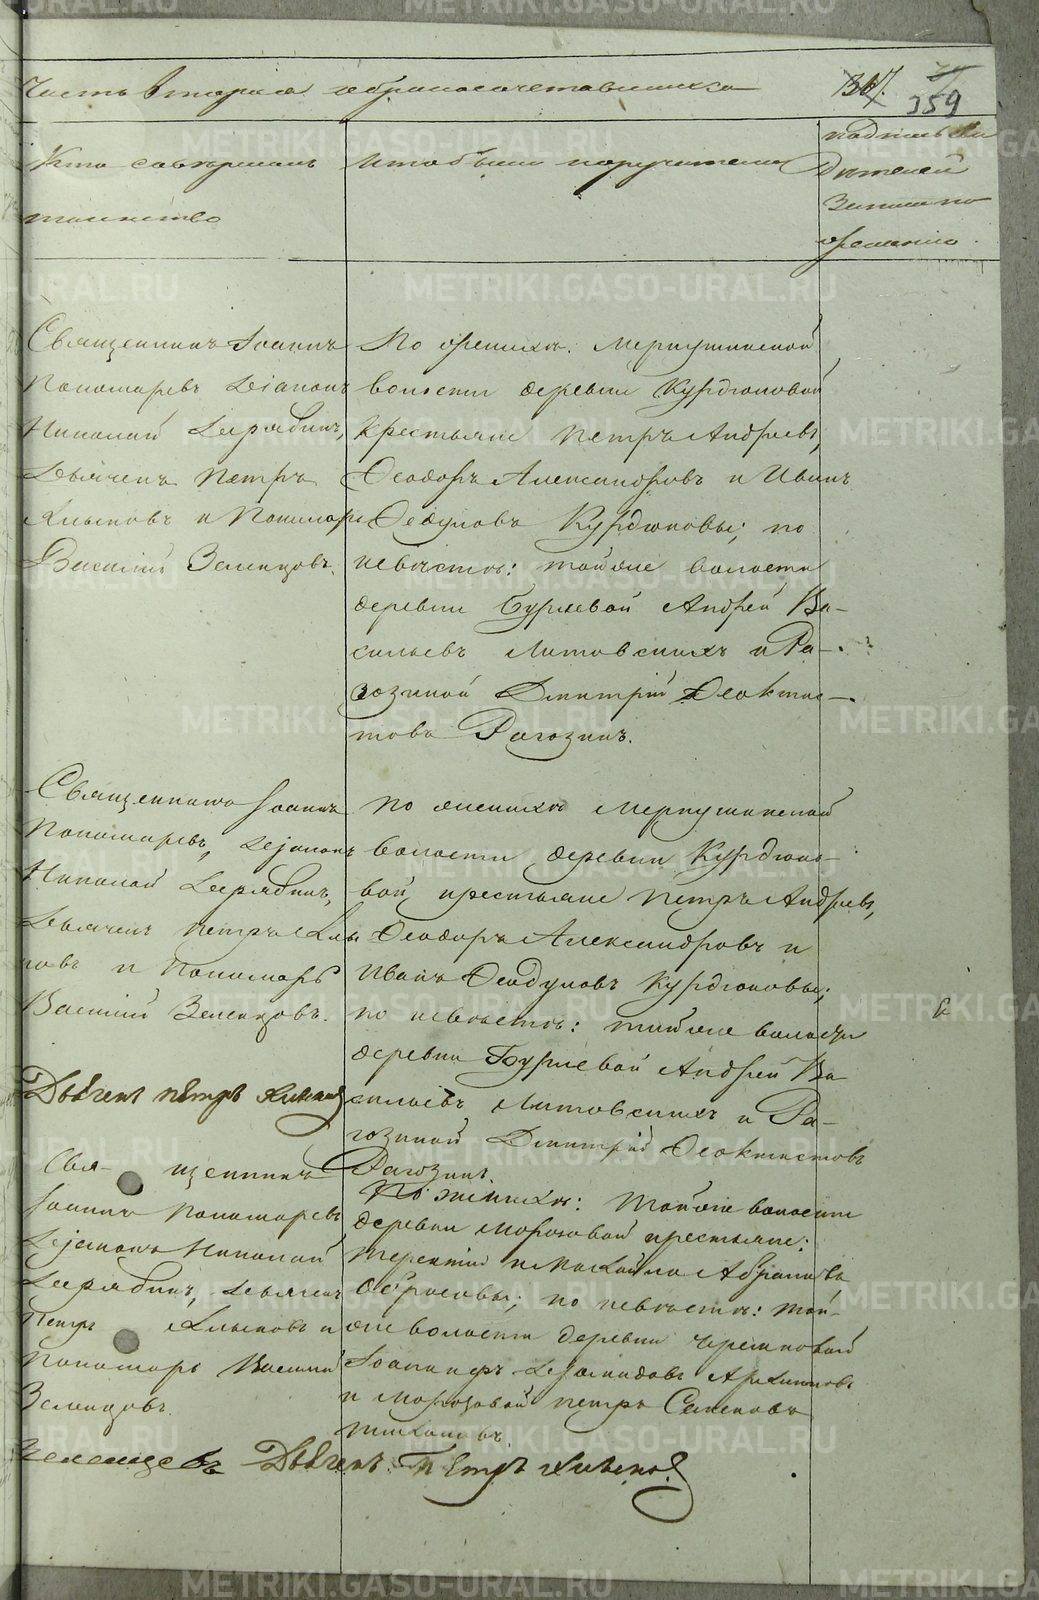 Часть вторая о бракосочетавшихся
359
Кто совершалъ
таинство
Кто были поручители
Подпись сви
дѣтелей
записи по
желанію.
Священникъ Іоаннъ
Пономаревъ Діаконъ
Николай Дерябинъ,
Дьячекъ Петръ
Хлыновъ и Пономарь
Василій Зеленцовъ.
По женихѣ: Меркушинской
волости деревни Курдюковой
крестьяне Петръ Андреевъ,
Ѳеодоръ Александровъ и Иванъ
Ѳедуловъ Курдюковы; по
невѣстѣ: тойже волости
деревни Бурлевой Андрей Ва-
сильевъ Литовскихъ и Ра-
гозиной Димитрій Ѳеоктис-
товъ Рагозинъ.
Священникъ Іоаннъ
Пономаревъ, Діаконъ
Николай Дерябинъ,
Дьячекъ Петръ Хлы
новъ и Пономарь
Василій Зеленцовъ.
Дьячекъ Петръ
По женихѣ Меркушинской
волости деревни Курдюко-
вой крестьяне Петръ Андреевъ,
Ѳеодоръ Александровъ и
Иванъ Ѳеодуловъ Курдюковы;
по невѣстѣ: тойже волости
деревни Бурлевой Андрей Ва
сильевъ Литовскихъ и Ра-
гозиной Димитрій Ѳеоктистовъ
Рагозинъ.
Свя- щенникъ
Іоаннъ Пономаревъ
Діаконъ Николай
Дерябинъ, Дьячекъ
Петръ Хлыновъ и
Пономарь Василий
Зеленцовъ.
По женихѣ: Тойже волости
деревни Морозовой крестьяне:
Терентій и Михайло
по невѣстѣ: той-
же волости деревни
и Морозовой Петръ Семеновъ
Дьячекъ Петръ
METRIKI.GASO-URAL.RU